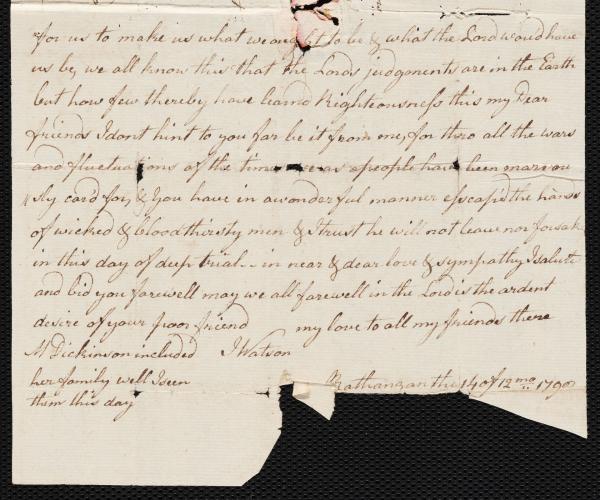 for us to make us what we ought to be & what the Lord would have
us be, we all know this that the Lords judgments are in the Earth
but how few thereby have learnd Righteousness this my Dear
friends I dont hint to you far be it from me, for thro all the wars
and fluctuations of the times we as a people have been marvou
sly car'd for, & you have in a wonderful manner escap'd the hands
of wicked & bloodthirsty men & I trust he will not leave nor forsake
in this day of deep trial -- in near & dear love & sympathy I salute
and bid you farewell may we all farewell in the Lord is the ardent
desire of your poor friend my love to all my friends there
M Dickinson included J Watson
her family well I seen
them this day
Rathangan the 14 of 12 mo 1798